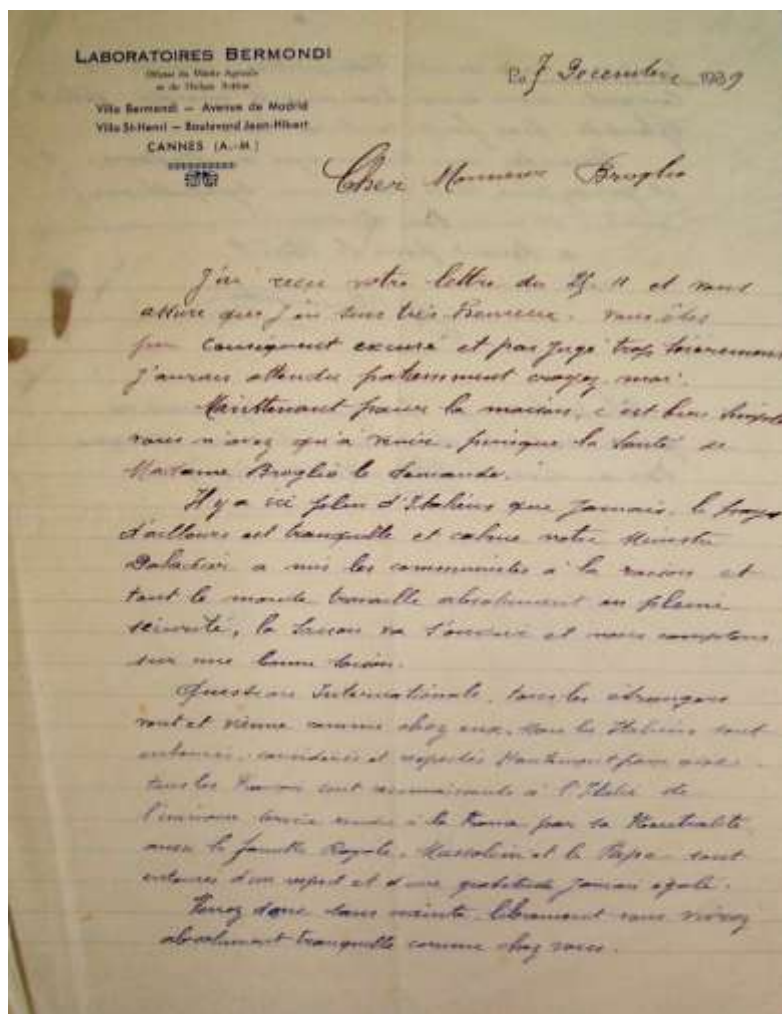 LABORATOIRES BERMONDI
Officier du Mérite Agricole
Villa Bermondi — Avenue de Madrid
Villa St-Henri — Boulevard Jean-Hibert
CANNES (A.-M.)
Le 7 Decembre 1939
Cher Monsieur Broglio
J'ai recu votre lettre du 25. 11 et vous
assure que j'en suis très heureux. vous êtes
par consequent excusé et pas jugé trop
j'aurais attendu patiemment croyez moi.
Maintenant pour la maison, c'est bien simple
vous n'avez qu'à venir, puisque la santé de
Madame Broglio le demande.
Il y a ici plein d'Italiens que jamais, le pays
d'ailleurs est tranquille et calme notre Ministre
Daladier a mis les communistes à la raison et
tout le monde travaille absolument en pleine
sécurité, la saison va s'ouvrir et nous comptons
sur une bonne saison.
Question Internationale, tous les étrangers
vont et vienne comme chez eux, tous les Italiens sont
entourés, considérés et respectés
tous les sont reconnaissants à l'Italie de
l'immense service rendu à la par sa Neutralité
aussi la famille Royale, Mussolini et le Pape sont
entourés d'un respect et d'une gratitude jamais égalé.
Venez donc sans crainte, librement vous vivrez
absolument tranquille comme chez vous.